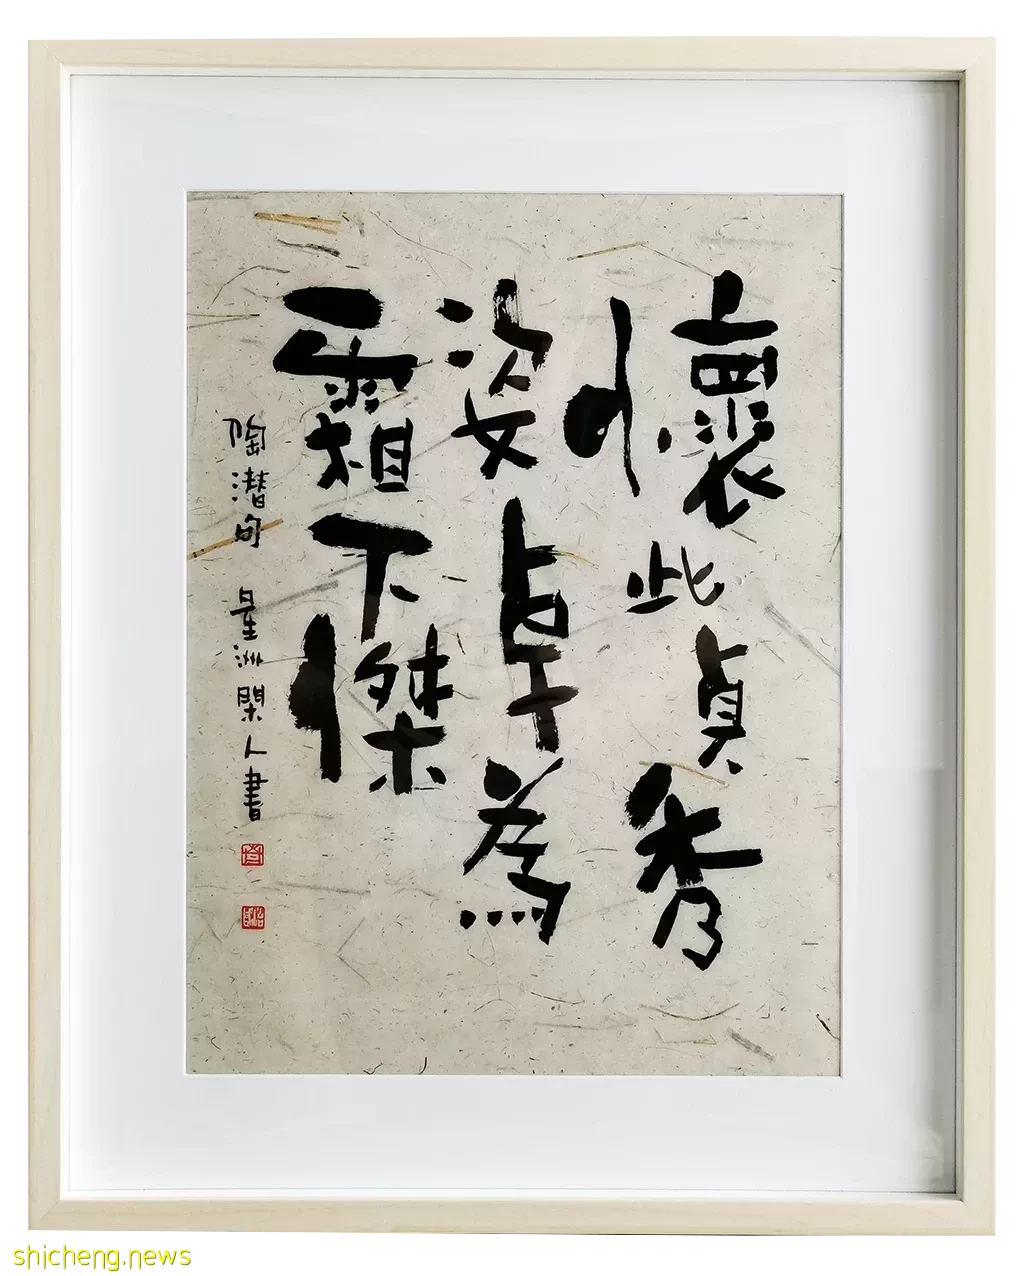 懷此貞秀
姿卓為
霜下傑
陶潜句 星洲閑人書
shicheng.news